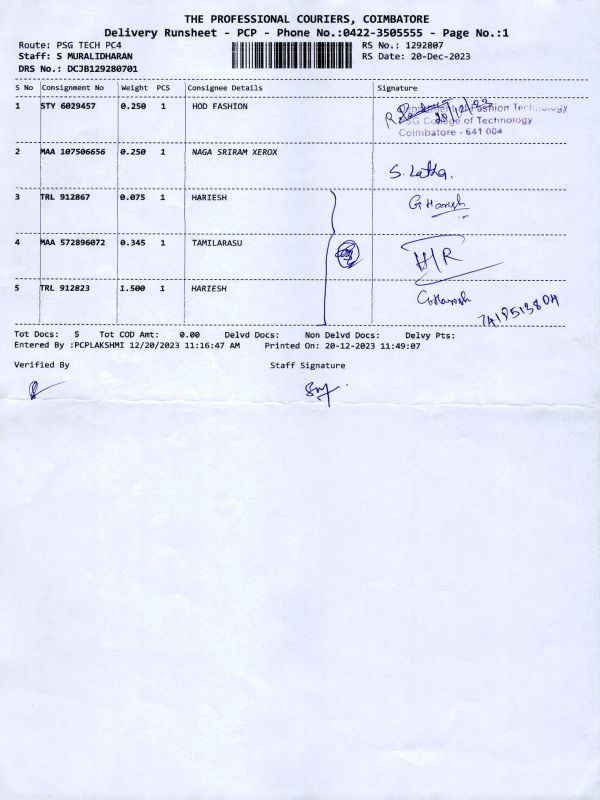 THE PROFESSIONAL COURIERS, COIMBATORE
Delivery Runsheet - PCP - Phone No.:0422-3505555 - Page No.:1
Route: PSG TECH PC4 RS No.: 1292807
Staff: S MURALIDHARAN RS Date: 20-Dec-2023
DRS No.: DCJB129280701
S No Consignment No Weight PCS Consignee Details Signature
1 STY 6029457 0.250 1 HOD FASHION
20/12/23
Fashion Technology
PSG College of Technology
Coimbatore - 641 004
2 MAA 107506656 0.250 1 NAGA SRIRAM XEROX
S. Latha.
3 TRL 912867 0.075 1 HARIESH G Harish
4 MAA 572896072 0.345 1 TAMILARASU
5 TRL 912823 1.500 1 HARIESH G Harish
Tot Docs: 5 Tot COD Amt: 0.00 Delvd Docs: Non Delvd Docs: Delvy Pts:
Entered By :PCPLAKSHMI 12/20/2023 11:16:47 AM Printed On: 20-12-2023 11:49:07
Verified By Staff Signature